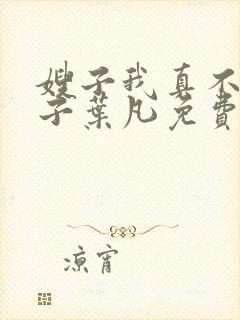 嫂子我真不
子葉凡免費
涼宵